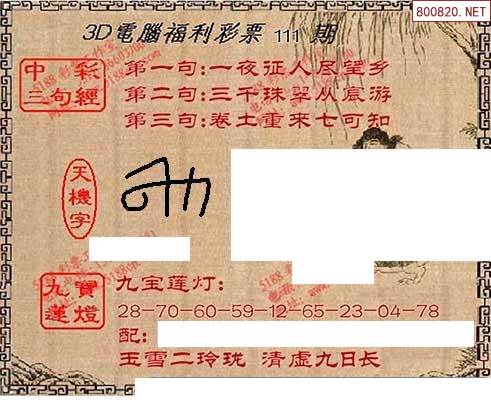 800820.NET
3D電腦福利彩票 111 期
中彩
三句經
第一句:一夜征人尽望乡
第二句:三千珠翠从宸游
第三句:卷土重来七可知
天機字
九寶蓮燈
九宝莲灯:
28-70-60-59-12-65-23-04-78
配:
玉雪二玲珑 清虚九日长